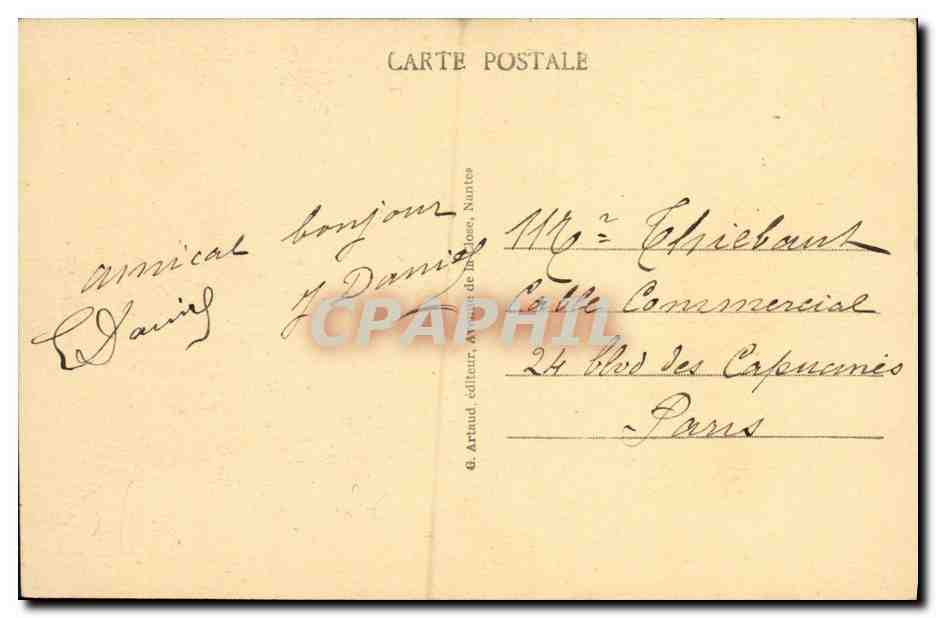 CARTE POSTALE
amical bonjour
J Daniel
Daniel
G. Artaud, éditeur, Avenue de la Close, Nantes
Mr Thiebaut
Cable Commercial
24 blvd des Capucines
Paris
CPAPHIL